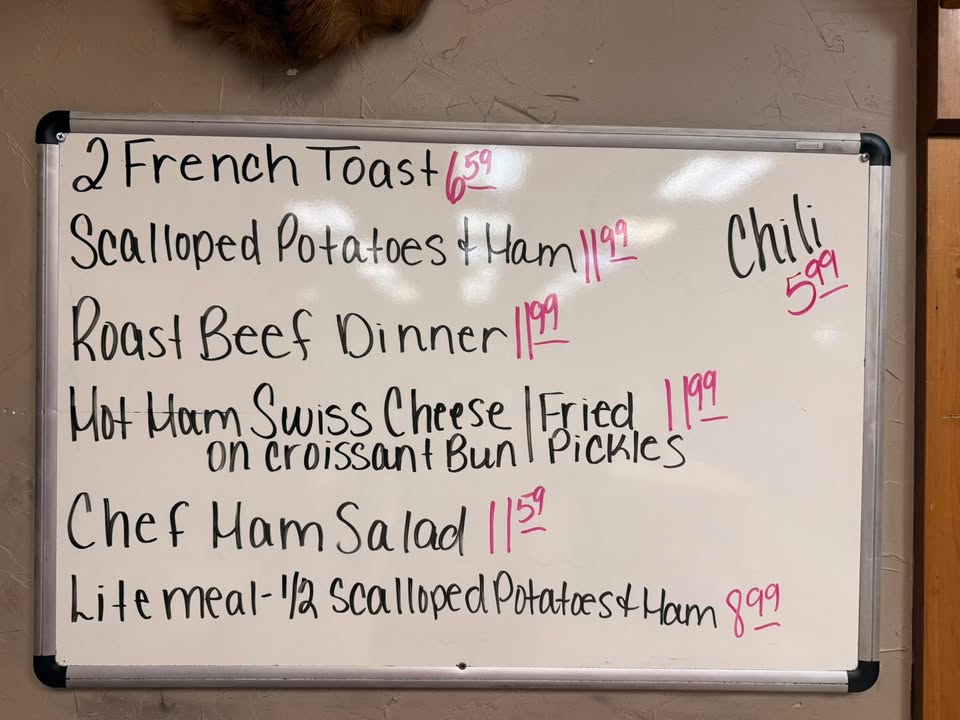 2 French Toast 6 59
Scalloped Potatoes & Ham 11 99
Chili
5 99
Roast Beef Dinner 11 99
Hot Ham Swiss Cheese | Fried 11 99
on croissant Bun | Pickles
Chef Ham Salad 11 59
Lite meal - 1/2 Scalloped Potatoes & Ham 8 99